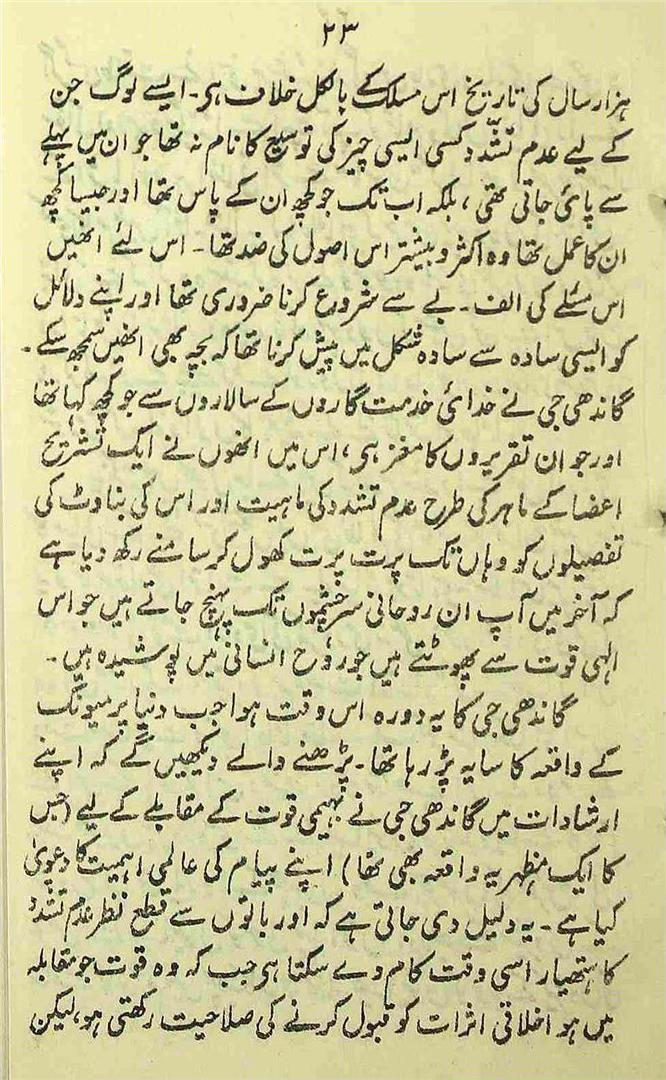 ۲۳
ہزار سال کی تاریخ اس مسلک کے بالکل خلاف ہی۔ ایسے لوگ جن
کے لیے عدم تشدّد کسی ایسی چیز کی توسیع کا نام نہ تھا جو ان میں پہلے
سے پائی جاتی تھی، بلکہ اب تک جو کچھ ان کے پاس تھا اور جیسا کچھ
ان کا عمل تھا وہ اکثر و بیشتر اس اصول کی ضد تھا۔ اس لئے انھیں
اس مسئلے کی الف۔ بے سے شروع کرنا ضروری تھا اور اپنے دلائل
کو ایسی سادہ سے سادہ شکل میں پیش کرنا تھا کہ بچہ بھی انھیں سمجھ سکے۔
گاندھی جی نے خدائی خدمت گاروں کے سالاروں سے جو کچھ کہا تھا
اور جو ان تقریروں کا مغز ہی، اس میں انھوں نے ایک تشریح
اعضا کے ماہر کی طرح عدم تشدد کی ماہیت اور اس کی بناوٹ کی
تفصیلوں کو وہاں تک پرت پرت کھول کر سامنے رکھ دیا ہے
کہ آخر میں آپ ان روحانی سرچشموں تک پہنچ جاتے ہیں جو اس
الٰہی قوت سے پھوٹتے ہیں جو رُوح انسانی میں پوشیدہ ہیں۔
گاندھی جی کا یہ دورہ اس وقت ہوا جب دنیا پر میونک
کے واقعہ کا سایہ پڑ رہا تھا۔ پڑھنے والے دیکھیں گے کہ اپنے
ارشادات میں گاندھی جی نے بہیمی قوت کے مقابلے کے لیے (جس
کا ایک مظہر یہ واقعہ بھی تھا) اپنے پیام کی عالمی اہمیت کا دعویٰ
کیا ہے۔ یہ دلیل دی جاتی ہے کہ اور باتوں سے قطع نظر عدم تشدد
کا ہتھیار اسی وقت کام دے سکتا ہی جب کہ وہ قوت جو مقابلہ
میں ہو اخلاقی اثرات کو قبول کرنے کی صلاحیت رکھتی ہو، لیکن